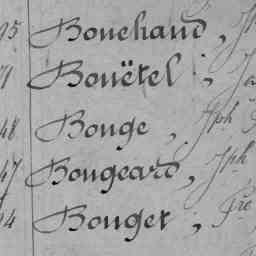 95 Bouchand, J
71 Bouëtel, Jo
48 Bouge, Jph
47 Bougeard, Jph
14 Bouget, Fre